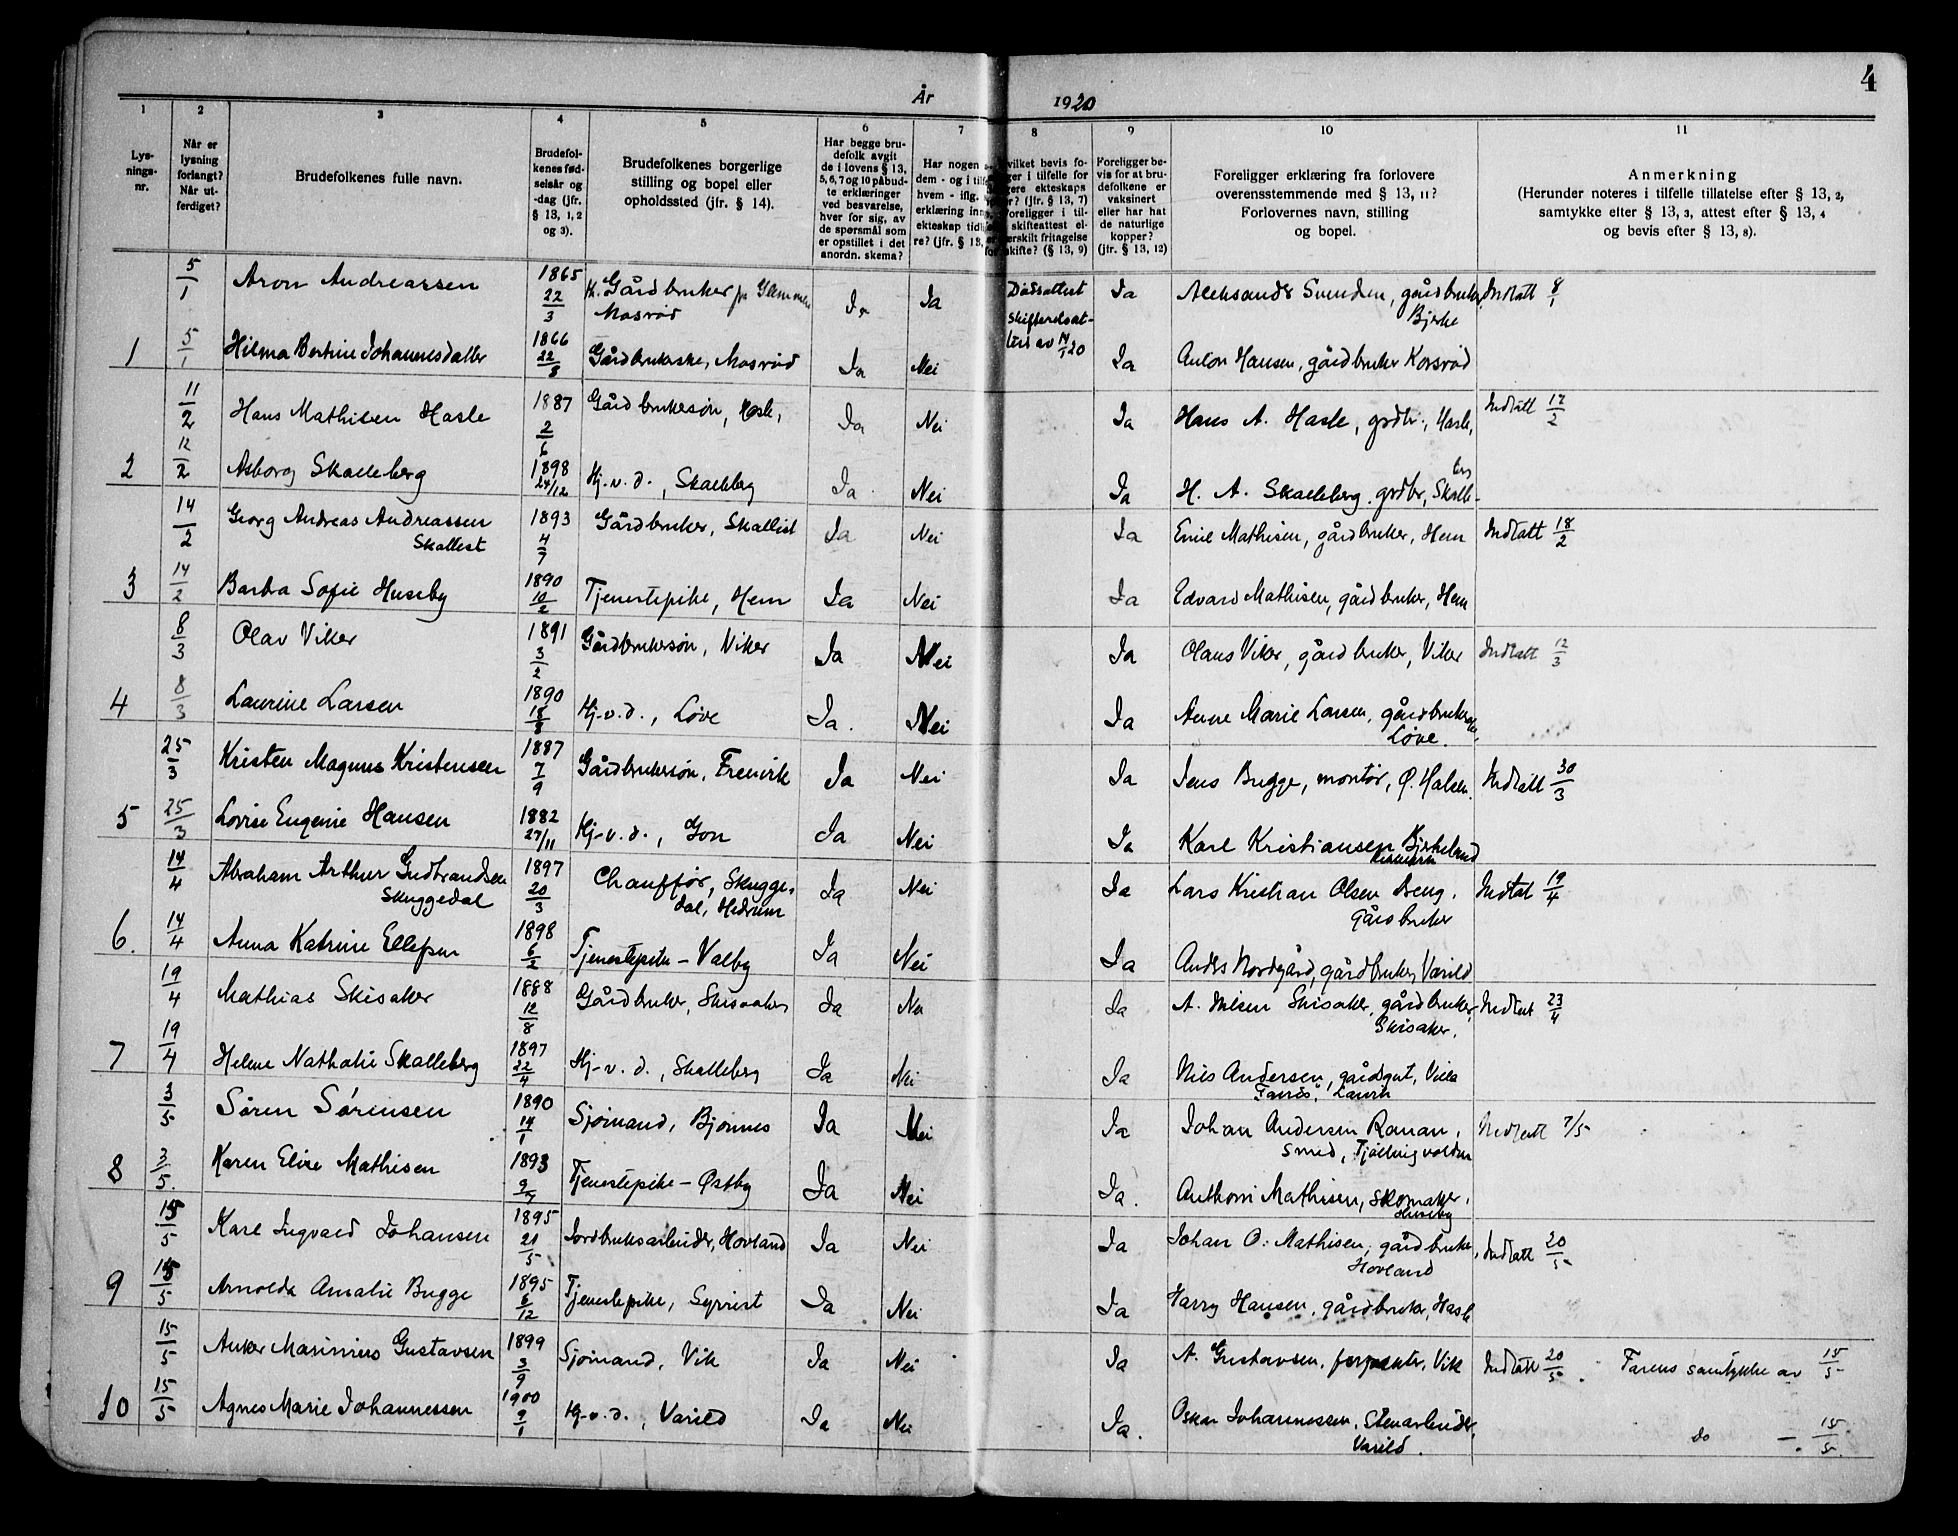 4
År 1920
1 2 3 4 5 6 7 8 9 10 11
Lys-
nings-
nr.
Når er
lysning
forlangt?
Når ut-
ferdiget?
Brudefolkenes fulle navn.
Brudefol-
kenes fød-
selsår og
-dag (jfr.
§ 13, 1, 2
og 3).
Brudefolkenes borgerlige
stilling og bopel eller
opholdssted (jfr. § 14).
Har begge bru-
defolk avgit
de i lovens § 13,
5, 6, 7 og 10 påbud-
te erklæringer
ved besvarelse,
hver for sig, av
de spørsmål som
er opstillet i det
anordn. skema?
Har nogen
dem - og i tilf
hvem - iflg.
erklæring inn
ekteskap tidl
re? (jfr. § 13,
vilket bevis fo-
ger i tilfelle for
gere ekteskaps
r? (jfr. § 13, 7)
oreligger i til-
skifteattest el-
erskilt fritagelse
skifte? (§ 13, 9)
Foreligger be-
vis for at bru-
defolkene er
vaksinert
eller har hat
de naturlige
kopper?
(jfr. § 13, 12)
Foreligger erklæring fra forlovere
overensstemmende med § 13, 11?
Forlovernes navn, stilling
og bopel.
Anmerkning
(Herunder noteres i tilfelle tillatelse efter § 13, 2,
samtykke efter § 13, 3, attest efter § 13, 4
og bevis efter § 13, 8).
5/1 Aron Andreassen 1865 22/3 Gårdbruker Mosrød Ja Ja Dødsattest Ja Aleksander Svendsen, gårdbruker, Bjerke Indtatt 8/1
1 5/1 Hilma Bertine Johannesdatter 1866 22/8 Gårdbrukerske, Mosrød Ja Nei Ja Anton Hansen, gårdbruker Korsrød
11/2 Hans Mathisen Hasle 1887 2/6 Gårdbrukersøn, Hasle, Ja Nei Ja Hans A. Hasle, grdbr., Hasle, Indtatt 17/2
2 12/2 Asborg Skalleberg 1898 24/12 Hj.v.d., Skalleberg Ja Nei Ja H. A. Skalleberg, grdbr, Skalleberg
14/2 Georg Andreas Andreassen Skallist 1893 4/7 Gårdbruker, Skallist Ja Nei Ja Emil Mathisen, gårdbruker, Hem Indtatt 18/2
3 14/2 Barba Sofie Huseby 1890 10/2 Tjenestepike, Hem Ja Nei Ja Edvard Mathisen, gårdbruker, Hem
8/3 Olav Viker 1891 3/2 Gårdbrukersøn, Viker Ja Nei Ja Olaus Viker, gårdbruker, Viker Indtatt 12/3
4 8/3 Laurine Larsen 1890 18/8 Hj-v.d., Løve Ja. Nei Ja Anne Marie Larsen, gårdbrukerske, Løve.
25/3 Kristen Magnus Kristensen 1887 7/9 Gårdbrukersøn, Fremvik Ja Nei Ja Jens Bugge, montør, Ø. Halsen. Indtatt 30/3
5 25/3 Lovise Eugenie Hansen 1882 27/11 Hj-v.d., Gon Ja Nei Ja Karl Kristiansen Bjrkelund
14/4 Abraham Arthur Gudbrandsen Skuggedal 1897 20/3 Chauffør, Skugge-dal, Hedrum Ja Nei Ja Lars Kristian Olsen Breng, Gårdbruker Indtat 19/4
6. 14/4 Anna Katrine Ellefsen 1898 6/2 Tjenestepike - Valby Ja Nei Ja Anders Nordgård, gårdbruker, Varild
19/4 Mathias Skisaker 1888 12/8 Gårdbruker, Skisaaker Ja Nei Ja A. Nilsen Skisaker, gårdbruker, Skisaker. Indtat 23/4
7 19/4 Helene Nathalie Skalleberg 1897 22/4 Hj-v.d., Skalleberg Ja Nei Ja Nils Andersen, gårdsgut, Villa Larvik
3/5 Søren Sørensen 1890 14/1 Sjømand, Bjønnes Ja Nei Ja Johan Andersen Ranan, Smed, Tjøllingvolden Indtatt 7/5
8 3/5. Karen Elise Mathisen 1893 9/9 Tjenestepike - Østby Ja Nei Ja. Anthoni Mathisen, skomaker, Huseby
15/5 Karl Ingvald Johansen 1895 21/5 Jordbruksarbeider, Hovland Ja Nei Ja Johan O. Mathisen, gårdbruker, Hovland Indtatt 20/5
9 15/5 Arnolda Amalie Bugge 1895 6/12 Tjenestepike, Syrrist Ja Nei Ja Harry Hansen, gårdbruker, Hasle
15/5 Anker Marinius Gustavsen 1899 3/9 Sjømand, Vik Ja Nei Ja A. Gustavsen, Vik Indtatt 20/5. Farens samtykke av 15/5
10 15/5 Agnes Marie Johannessen 1900 9/1 Hj-v.d., Varild Ja Nei Ja. Oskar Johannessen, Stenarbeider, Varild. do -. 15/5